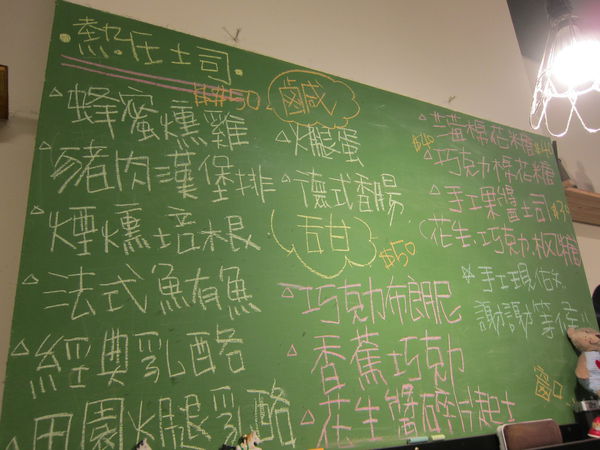 熱压土司
$50
蜂蜜燻雞
豬肉漢堡排
煙燻培根
法式鮪魚
經典乳酪
田園火腿乳酪
鹹
火腿蛋
德式香腸
甜
$50
巧克力布朗尼
香蕉巧克力
花生醬碎片起士
巧克力棉花糖
手工果醬土司
花生.巧克力.楓糖
手工現做
謝謝等候
窗口